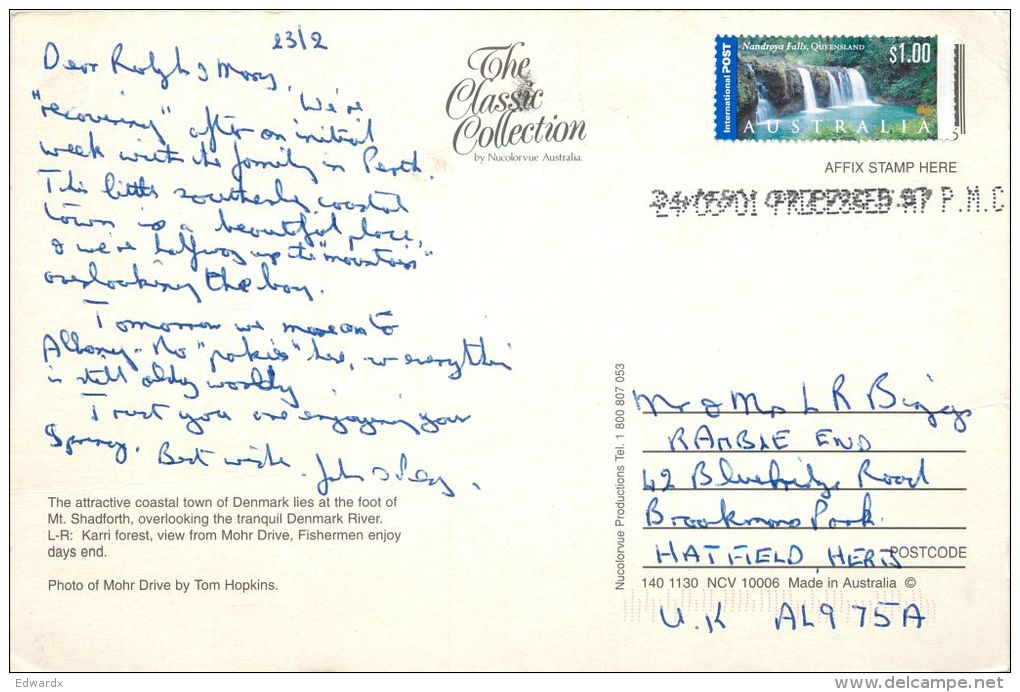 23/2
Dear Ralph & Mary, We're
"recovering" after an initial
week with the family in Perth.
This little southerly coastal
town is a beautiful place,
& we're halfway up the "mountain"
overlooking the bay.
Tomorrow we move on to
Albany - No "pokies" here, & everything
is still oldey worldy.
Trust you are enjoying your
Spring. Best wishes. John &
The attractive coastal town of Denmark lies at the foot of
Mt. Shadforth, overlooking the tranquil Denmark River.
L-R: Karri forest, view from Mohr Drive, Fishermen enjoy
days end.
Photo of Mohr Drive by Tom Hopkins.
The
Classic
Collection
by Nucolorvue Australia.
Nucolorvue Productions Tel. 1 800 807 053
International POST
Nandroya Falls, QUEENSLAND
$1.00
AUSTRALIA
AFFIX STAMP HERE
P.M.C
Mr & Mrs L R Biggs
RAMBLE END
42 Bluebridge Road
Brookmans Park
HATFIELD, HERTS
POSTCODE
140 1130 NCV 10006 Made in Australia ©
U.K AL9 7SA
Edwardx
www.delcampe.net